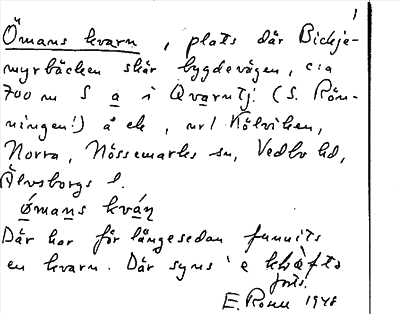 1
Ömans kvarn, plats där Bickje-
myrbäcken skär bygdevägen, c:a
700 m S a i Qvarntj. (S. Rön-
ningen!) å ek, nr 1 Kölviken,
Norra, Nössemarks sn, Vedbo hd,
Älvsborgs l.
ǿmans kváṇ
Där har för längesedan funnits
en kvarn. Där syns
forts.
E. Ronu 1948